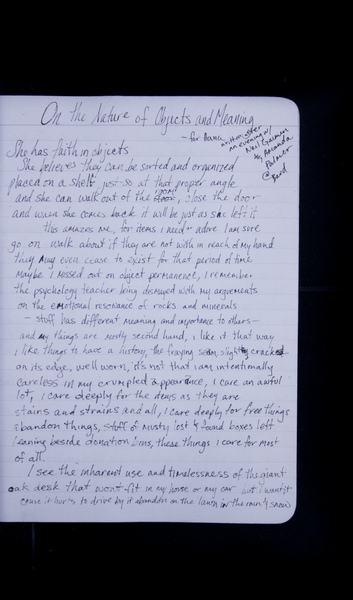 On the Nature of Objects and Meaning
- for Anna
written after
an evening w/
Neil Gaiman
& Amanda
Palmer
@
Bard
She has faith in objects
She believes they can be sorted and organized
placed on a shelf just so at that proper angle
and she can walk out of the room, close the door
and when she comes back it will be just as she left it
this amazes me, for items I need or adore I am sure
go on walk about if they are not with in reach of my hand
they may even cease to exist for that period of time
Maybe I missed out on object permanence, I remember
the psychology teacher being dismayed with my arguments
on the emotional resonance of rocks and minerals
- stuff has different meaning and importance to others -
and my things are mostly second hand, I like it that way
I like things to have a history, the fraying seam, slightly cracked
on its edge, well worn, its not that I am intentionally
careless in my crumpled appearance, I care an awful
lot, I care deeply for the items as they are
stains and strains and all, I care deeply for free things
abandon things, stuff of musty lost & found boxes left
leaning beside donation bins, these things I care for most
of all.
I see the inherent use and timelessness of the giant
oak desk that wont fit in my house or my car but I want it
cause it hurts to drive by it abandon on the lawn in the rain & snow